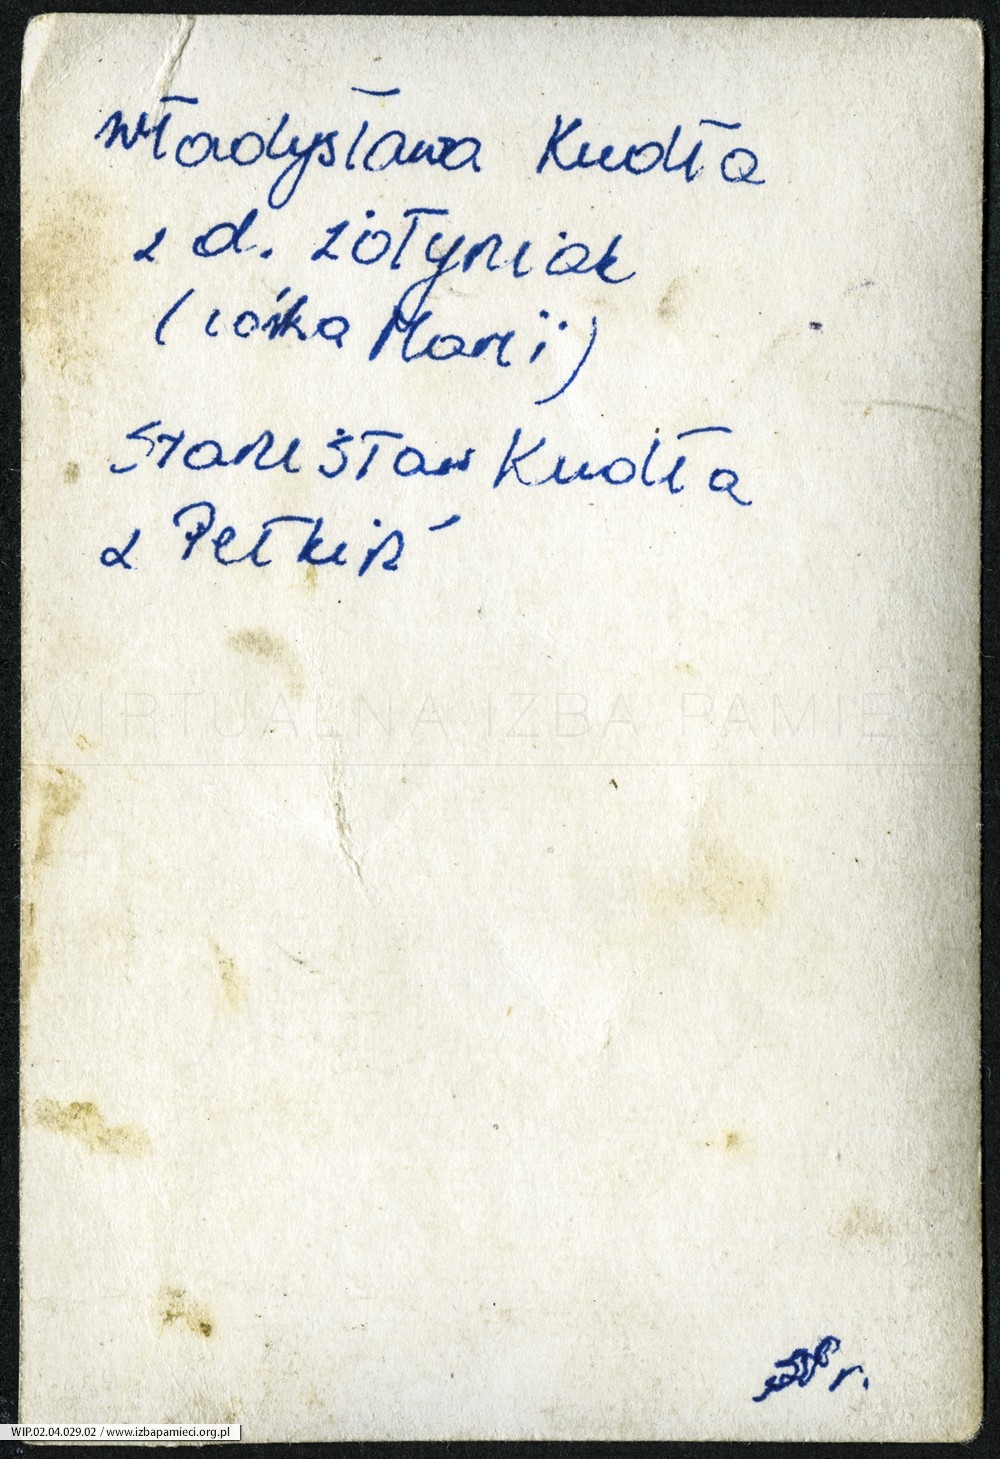 Władysława Kudła
z d. Żołyniak
(córka Marii)
Stanisław Kudła
z Pełkiń
WIRTUALNA IZBA PAMIĘCI
r.
WIP.02.04.029.02 / www.izbapamieci.org.pl